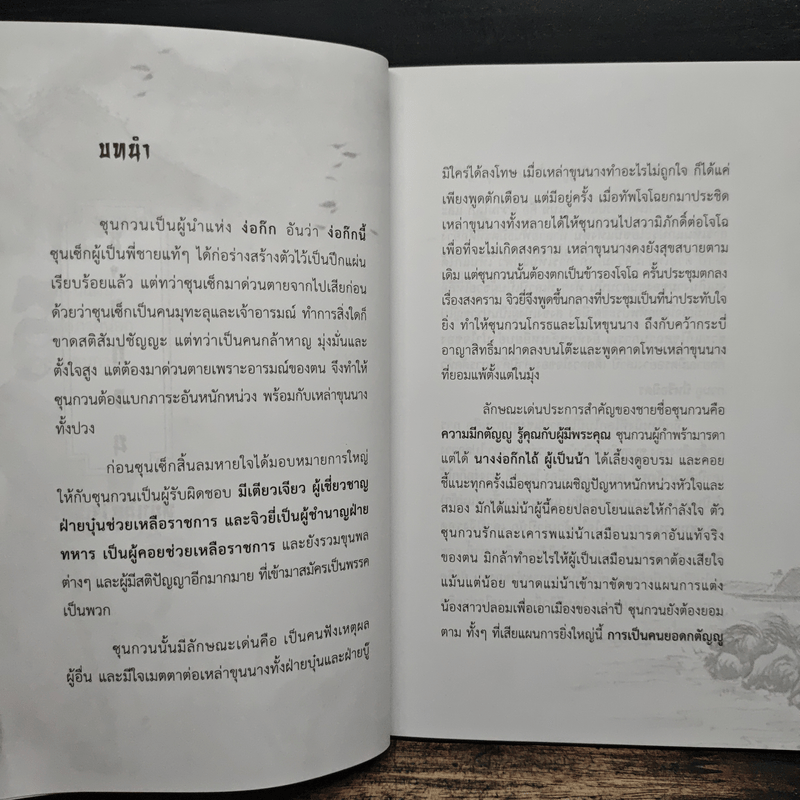 บทนำ
ซุนกวนเป็นผู้นำแห่ง ง่อก๊ก อันว่า ง่อก๊กนี้
ซุนเซ็กผู้เป็นพี่ชายแท้ๆ ได้ก่อร่างสร้างตัวไว้เป็นปึกแผ่น
เรียบร้อยแล้ว แต่ทว่าซุนเซ็กมาด่วนตายจากไปเสียก่อน
ด้วยว่าซุนเซ็กเป็นคนมุทะลุและเจ้าอารมณ์ ทำการสิ่งใดก็
ขาดสติสัมปชัญญะ แต่ทว่าเป็นคนกล้าหาญ มุ่งมั่นและ
ตั้งใจสูง แต่ต้องมาด่วนตายเพราะอารมณ์ของตน จึงทำให้
ซุนกวนต้องแบกภาระอันหนักหน่วง พร้อมกับเหล่าขุนนาง
ทั้งปวง
ก่อนซุนเซ็กสิ้นลมหายใจได้มอบหมายการใหญ่
ให้กับซุนกวนเป็นผู้รับผิดชอบ มีเตียวเจียว ผู้เชี่ยวชาญ
ฝ่ายบุ๋นช่วยเหลือราชการ และจิวยี่เป็นผู้ชำนาญฝ่าย
ทหาร เป็นผู้คอยช่วยเหลือราชการ และยังรวมขุนพล
ต่างๆ และผู้มีสติปัญญาอีกมากมาย ที่เข้ามาสมัครเป็นพรรค
เป็นพวก
ซุนกวนนั้นมีลักษณะเด่นคือ เป็นคนฟังเหตุผล
ผู้อื่น และมีใจเมตตาต่อเหล่าขุนนางทั้งฝ่ายบุ๋นและฝ่ายบู๊
มิใคร่ได้ลงโทษ เมื่อเหล่าขุนนางทำอะไรไม่ถูกใจ ก็ได้แค่
เพียงพูดตักเตือน แต่มีอยู่ครั้ง เมื่อทัพโจโฉยกมาประชิด
เหล่าขุนนางทั้งหลายได้ให้ซุนกวนไปสวามิภักดิ์ต่อโจโฉ
เพื่อที่จะไม่เกิดสงคราม เหล่าขุนนางคงยังสุขสบายตาม
เดิม แต่ซุนกวนนั้นต้องตกเป็นข้ารองโจโฉ ครั้นประชุมตกลง
เรื่องสงคราม จิวยี่จึงพูดขึ้นกลางที่ประชุมเป็นที่น่าประทับใจ
ยิ่ง ทำให้ซุนกวนโกรธและโมโหขุนนาง ถึงกับคว้ากระบี่
อาญาสิทธิ์มาฝาดลงบนโต๊ะและพูดคาดโทษเหล่าขุนนาง
ที่ยอมแพ้ตั้งแต่ในมุ้ง
ลักษณะเด่นประการสำคัญของชายชื่อซุนกวนคือ
ความมีกตัญญู รู้คุณกับผู้มีพระคุณ ซุนกวนผู้กำพร้ามารดา
แต่ได้ นางง่อก๊กไถ้ ผู้เป็นน้า ได้เลี้ยงดูอบรม และคอย
ชี้แนะทุกครั้งเมื่อซุนกวนเผชิญปัญหาหนักหน่วงหัวใจและ
สมอง มักได้แม่น้าผู้นี้คอยปลอบโยนและให้กำลังใจ ตัว
ซุนกวนรักและเคารพแม่น้าเสมือนมารดาอันแท้จริง
ของตน มิกล้าทำอะไรให้ผู้เป็นเสมือนมารดาต้องเสียใจ
แม้นแต่น้อย ขนาดแม่น้าเข้ามาขัดขวางแผนการแต่ง
น้องสาวปลอมเพื่อเอาเมืองของเล่าปี่ ซุนกวนยังต้องยอม
ตาม ทั้งๆ ที่เสียแผนการยิ่งใหญ่นี้ การเป็นคนยอดกตัญญู